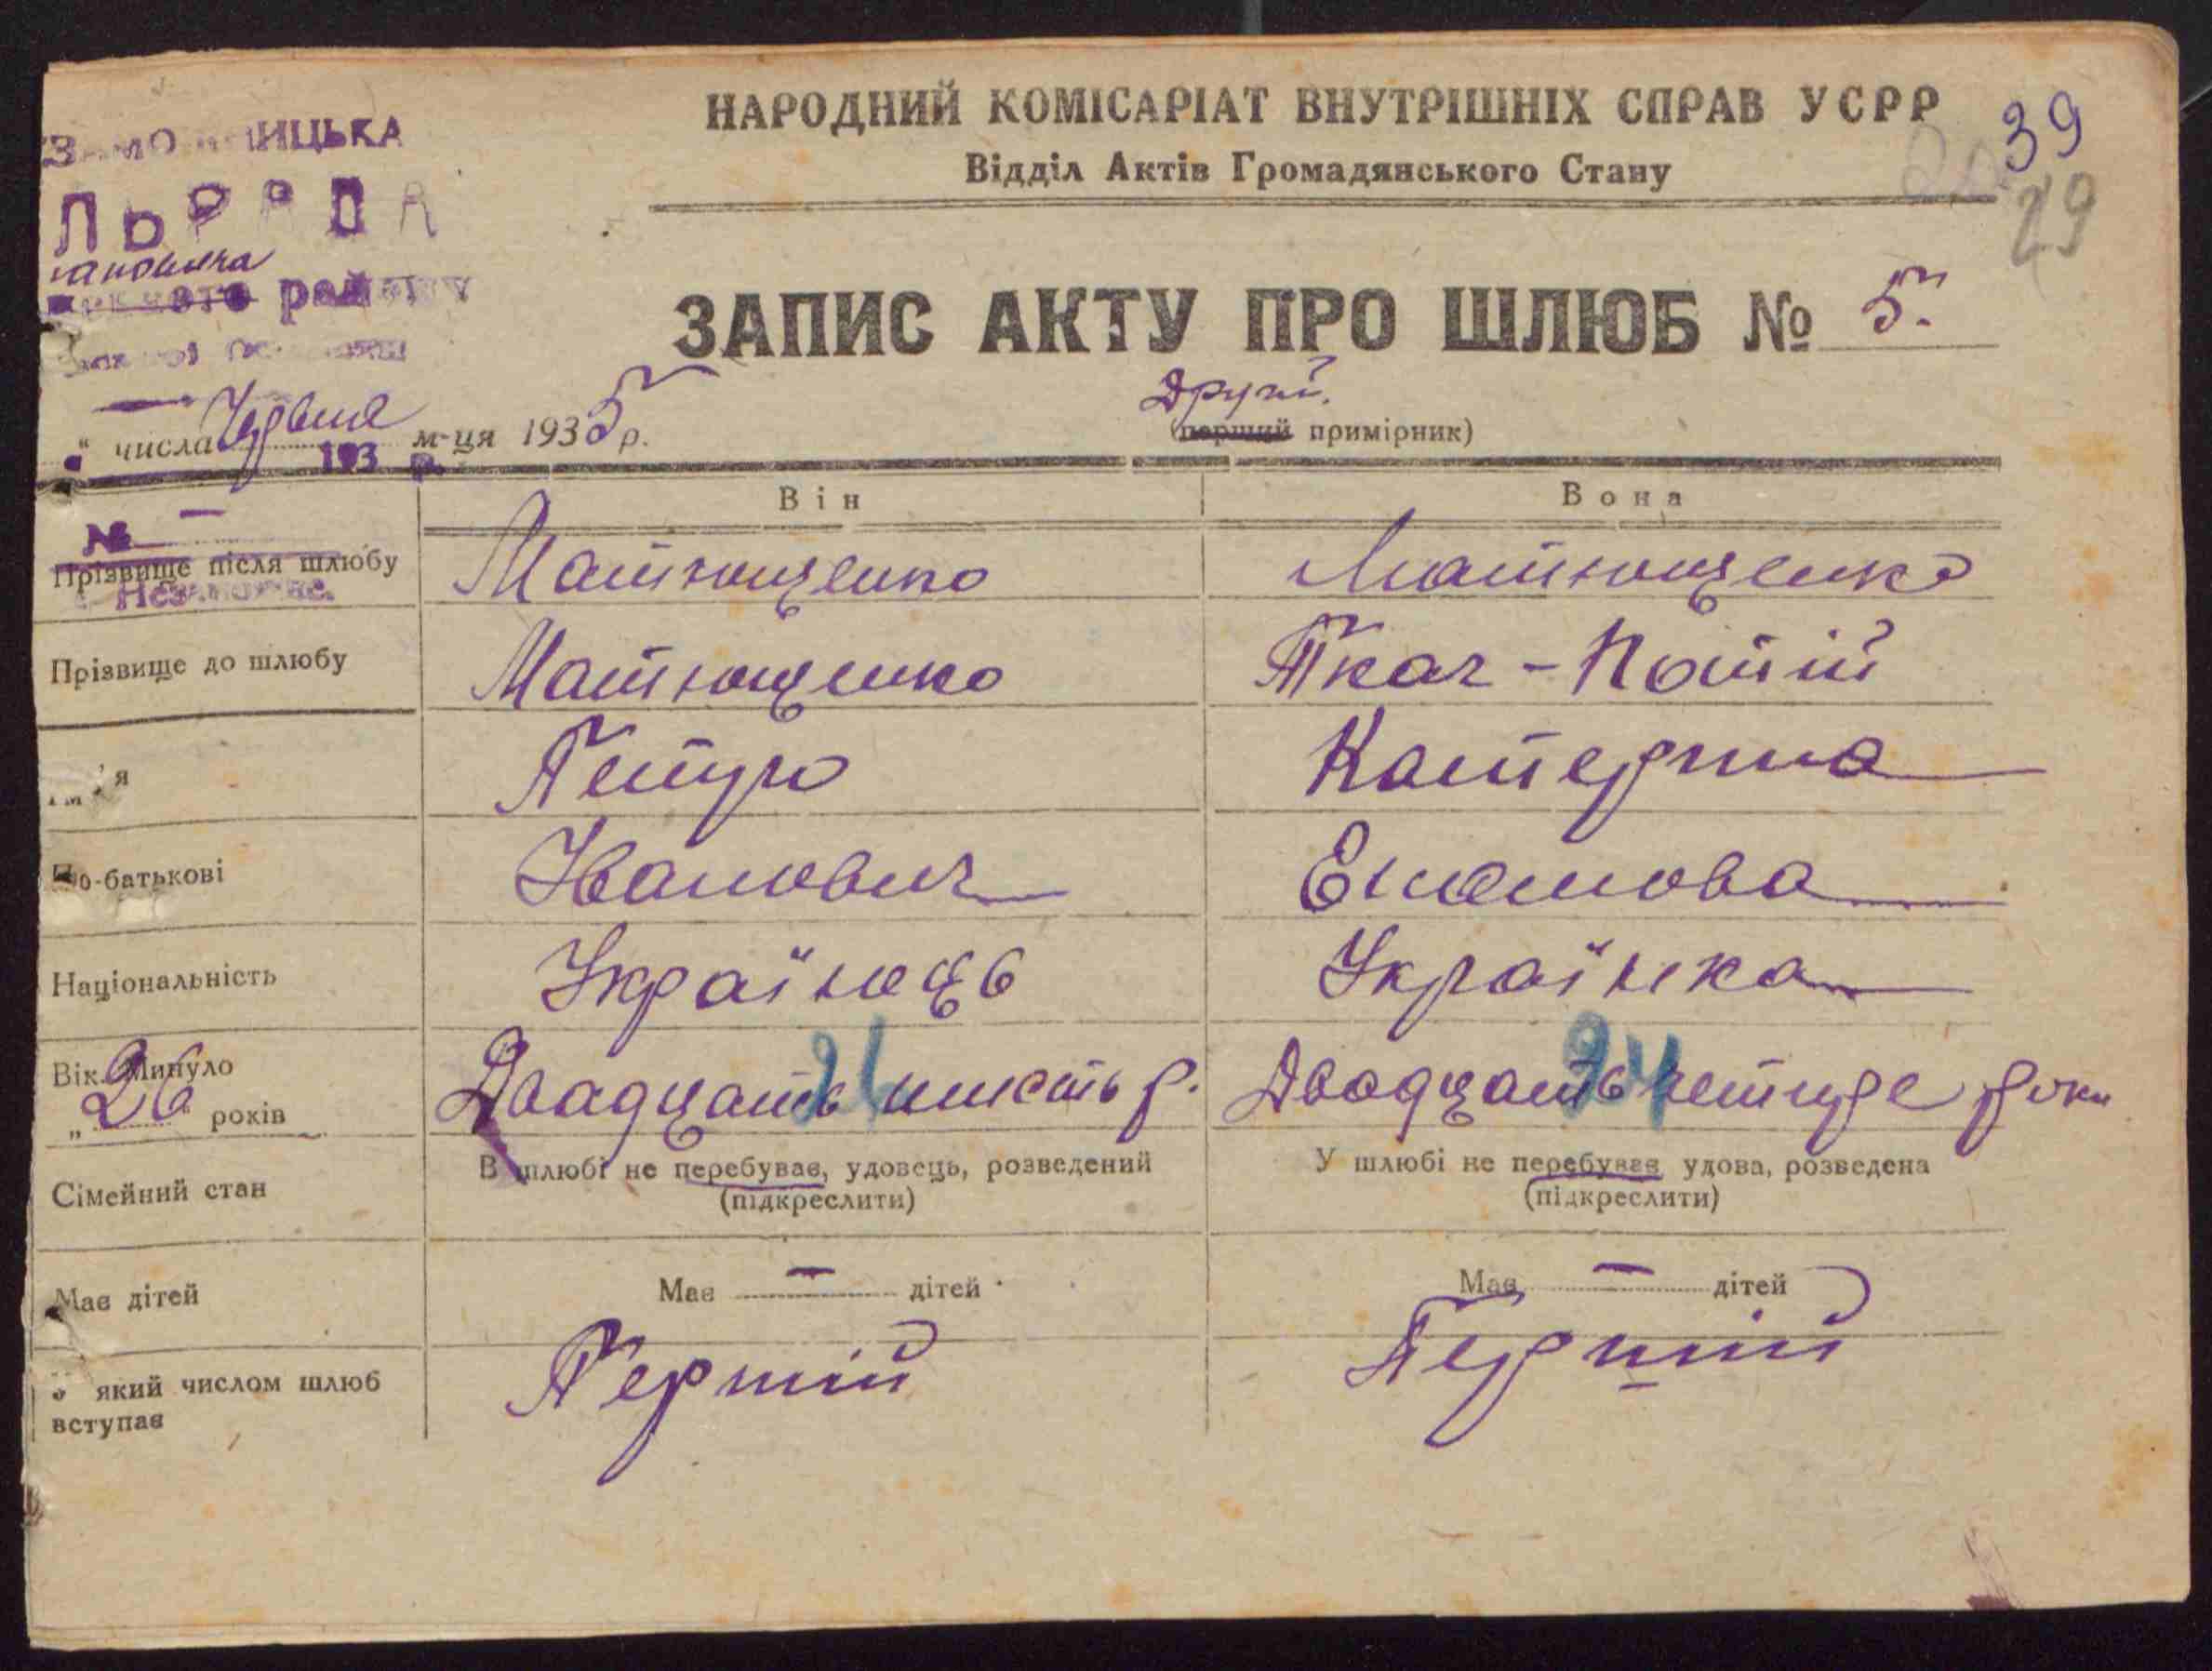 НАРОДНИЙ КОМІСАРІАТ ВНУТРІШНІХ СПРАВ УСРР
39
Відділ Актів Громадянського Стану
29
ЗАПИС АКТУ ПРО ШЛЮБ № 5.
Другий.
(перший примірник)
" числа Червня м-ця 1935 р.
193 р.
Він Вона
№ —
Прізвище після шлюбу Матющенко Матющенко
Прізвище до шлюбу Матющенко Ткач - Патій
Ім'я Петро Катерина
По-батькові Іванович
Національність Українець Українка
26 24
Вік. Минуло "26" років Двадцать шисть р. Двадцать четире роки
Сімейний стан В шлюбі не перебував, удовець, розведений У шлюбі не перебуває удова, розведена
(підкреслити) (підкреслити)
Має дітей Має — дітей Має — дітей
який числом шлюб Першій Першій
вступає